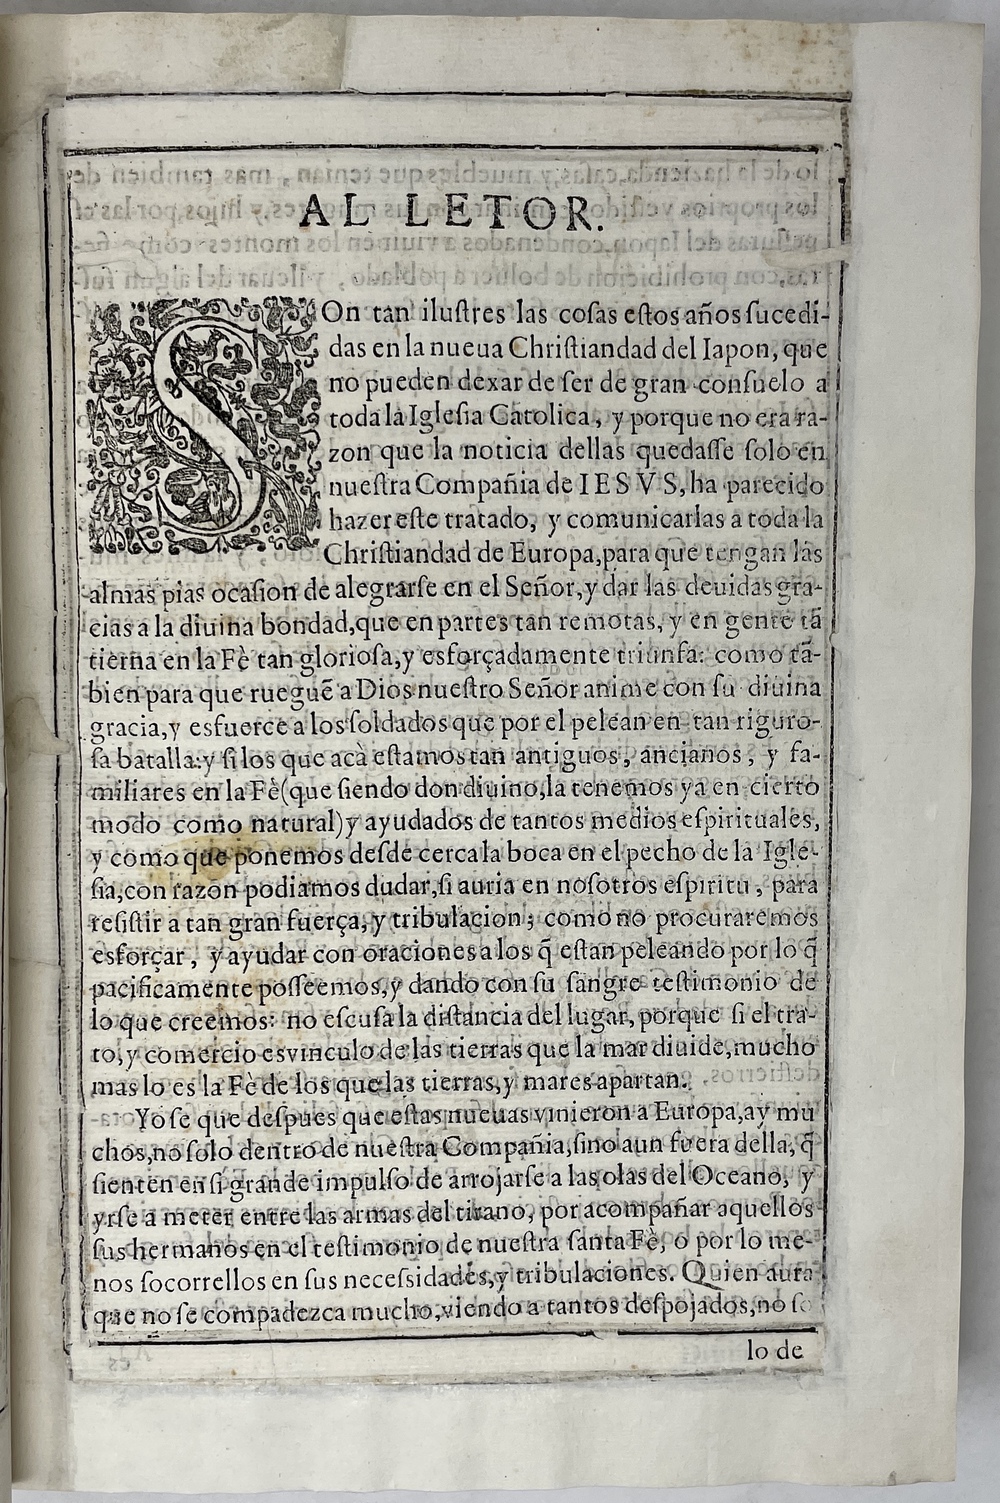 AL LETOR.
SOn tan iluſtres las coſas eſtos años ſucedi-
das en la nueua Chriſtiandad del Iapon, que
no pueden dexar de ſer de gran conſuelo a
toda la Igleſia Catolica, y porque no era ra-
zon que la noticia dellas quedaſſe ſolo en
nueſtra Compañia de IESVS, ha parecido
hazer eſte tratado, y comunicarlas a toda la
Chriſtiandad de Europa, para que tengan las
almas pias ocaſion de alegrarſe en el Señor, y dar las deuidas gra-
cias a la diuina bondad, que en partes tan remotas, y en gente tã
tierna en la Fè tan glorioſa, y esforçadamente triunfa: como tã-
bien para que rueguẽ a Dios nueſtro Señor anime con ſu diuina
gracia, y esfuerce a los ſoldados que por el pelean en tan riguro-
ſa batalla: y ſi los que acà eſtamos tan antiguos, ancianos, y fa-
miliares en la Fè (que ſiendo don diuino, la tenemos ya en cierto
modo como natural) y ayudados de tantos medios eſpirituales,
y como que ponemos deſde cerca la boca en el pecho de la Igle-
ſia, con razon podiamos dudar, ſi auria en noſotros eſpiritu, para
reſiſtir a tan gran fuerça, y tribulacion; como no procuraremos
esforçar, y ayudar con oraciones a los q̃ eſtan peleando por lo q̃
pacificamente poſſeemos, y dando con ſu ſangre teſtimonio de
lo que creemos: no eſcuſa la diſtancia del lugar, porque ſi el tra-
to, y comercio es vinculo de las tierras que la mar diuide, mucho
mas lo es la Fè de los que las tierras, y mares apartan.
Yo ſe que deſpues que eſtas nueuas vinieron a Europa, ay mu
chos, no ſolo dentro de nueſtra Compañia, ſino aun fuera della, q̃
ſienten en ſi grande impulſo de arrojarſe a las olas del Oceano, y
yrſe a meter entre las armas del tirano, por acompañar aquellos
ſus hermanos en el teſtimonio de nueſtra ſanta Fè, o por lo me-
nos ſocorrellos en ſus neceſsidades, y tribulaciones. Quien aura
que no ſe compadezca mucho, viendo a tantos deſpojados, no ſo
lo de